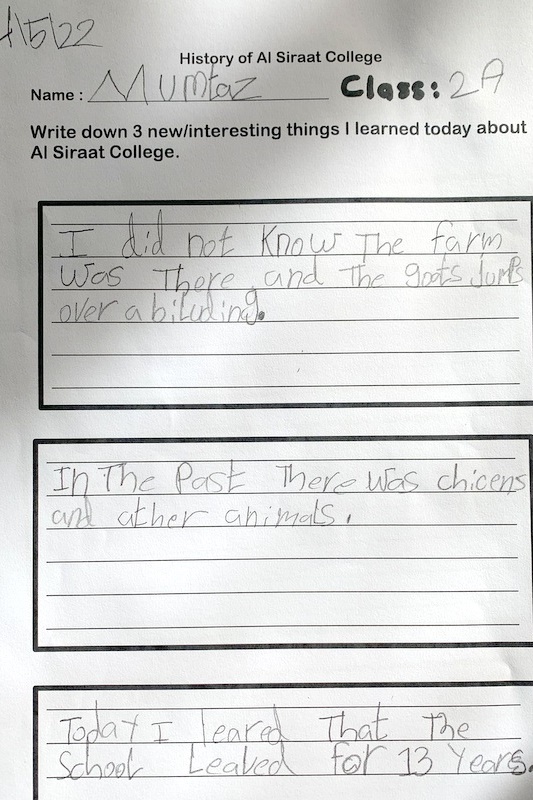 /5/22
History of Al Siraat College
Name : Mumtaz Class: 2A
Write down 3 new/interesting things I learned today about
Al Siraat College.
I did not know The farm
was There and The goats jumps
over a biluding.
In The Past There was chicens
and ather animals.
Today I leared That The
School Leabed for 13 Years.